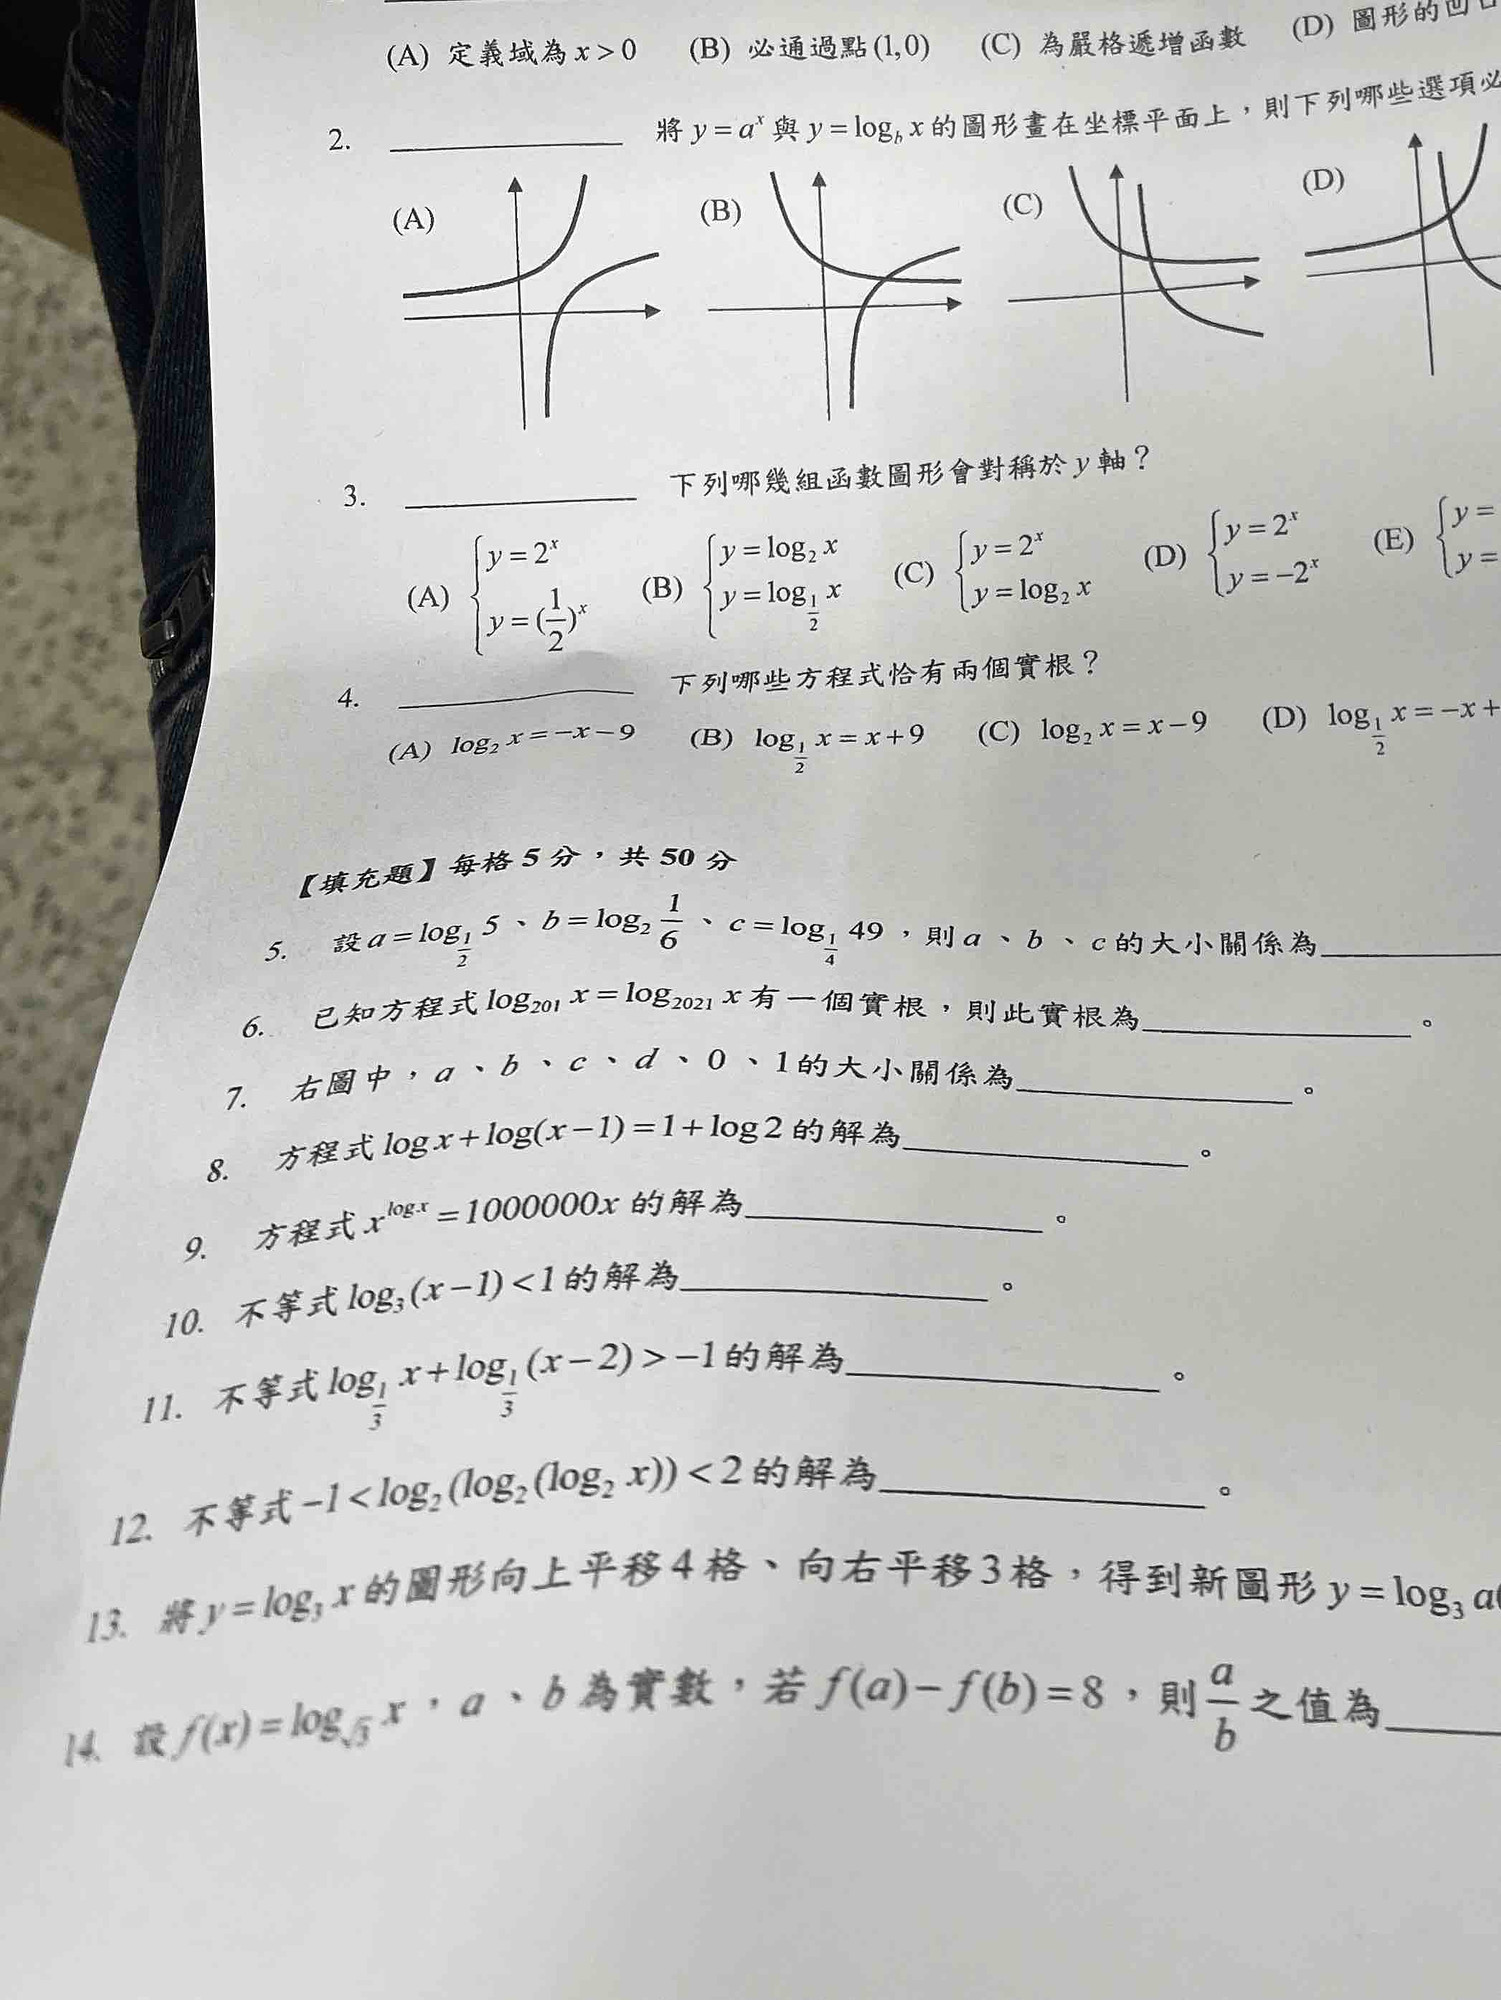 (A) 定義域為 x > 0 (B) 必通過點(1,0) (C) 為嚴格遞增函數 (D) 圖形的凹
2. ________ 將 y = a^x 與 y = log_b x 的圖形畫在坐標平面上，則下列哪些選項必
(A) (B) (C) (D)
3. ________ 下列哪幾組函數圖形會對稱於 y 軸？
(A) { y = 2^x, y = (1/2)^x (B) { y = log_2 x, y = log_{1/2} x (C) { y = 2^x, y = log_2 x (D) { y = 2^x, y = -2^x (E) { y =, y =
4. ________ 下列哪些方程式恰有兩個實根？
(A) log_2 x = -x - 9 (B) log_{1/2} x = x + 9 (C) log_2 x = x - 9 (D) log_{1/2} x = -x +
【填充題】每格 5 分，共 50 分
5. 設 a = log_{1/2} 5、b = log_2 1/6、c = log_{1/4} 49，則 a、b、c 的大小關係為________
6. 已知方程式 log_{201} x = log_{2021} x 有一個實根，則此實根為________。
7. 右圖中，a、b、c、d、0、1的大小關係為________。
8. 方程式 log x + log(x-1) = 1 + log 2 的解為________。
9. 方程式 x^{log x} = 1000000x 的解為________。
10. 不等式 log_3 (x-1) < 1 的解為________。
11. 不等式 log_{1/3} x + log_{1/3} (x-2) > -1 的解為________。
12. 不等式 -1 < log_2 (log_2 (log_2 x)) < 2 的解為________。
13. 將 y = log_3 x 的圖形向上平移 4 格、向右平移 3 格，得到新圖形 y = log_3 a(
14. 設 f(x) = log_{√3} x，a、b 為實數，若 f(a) - f(b) = 8，則 a/b 之值為________